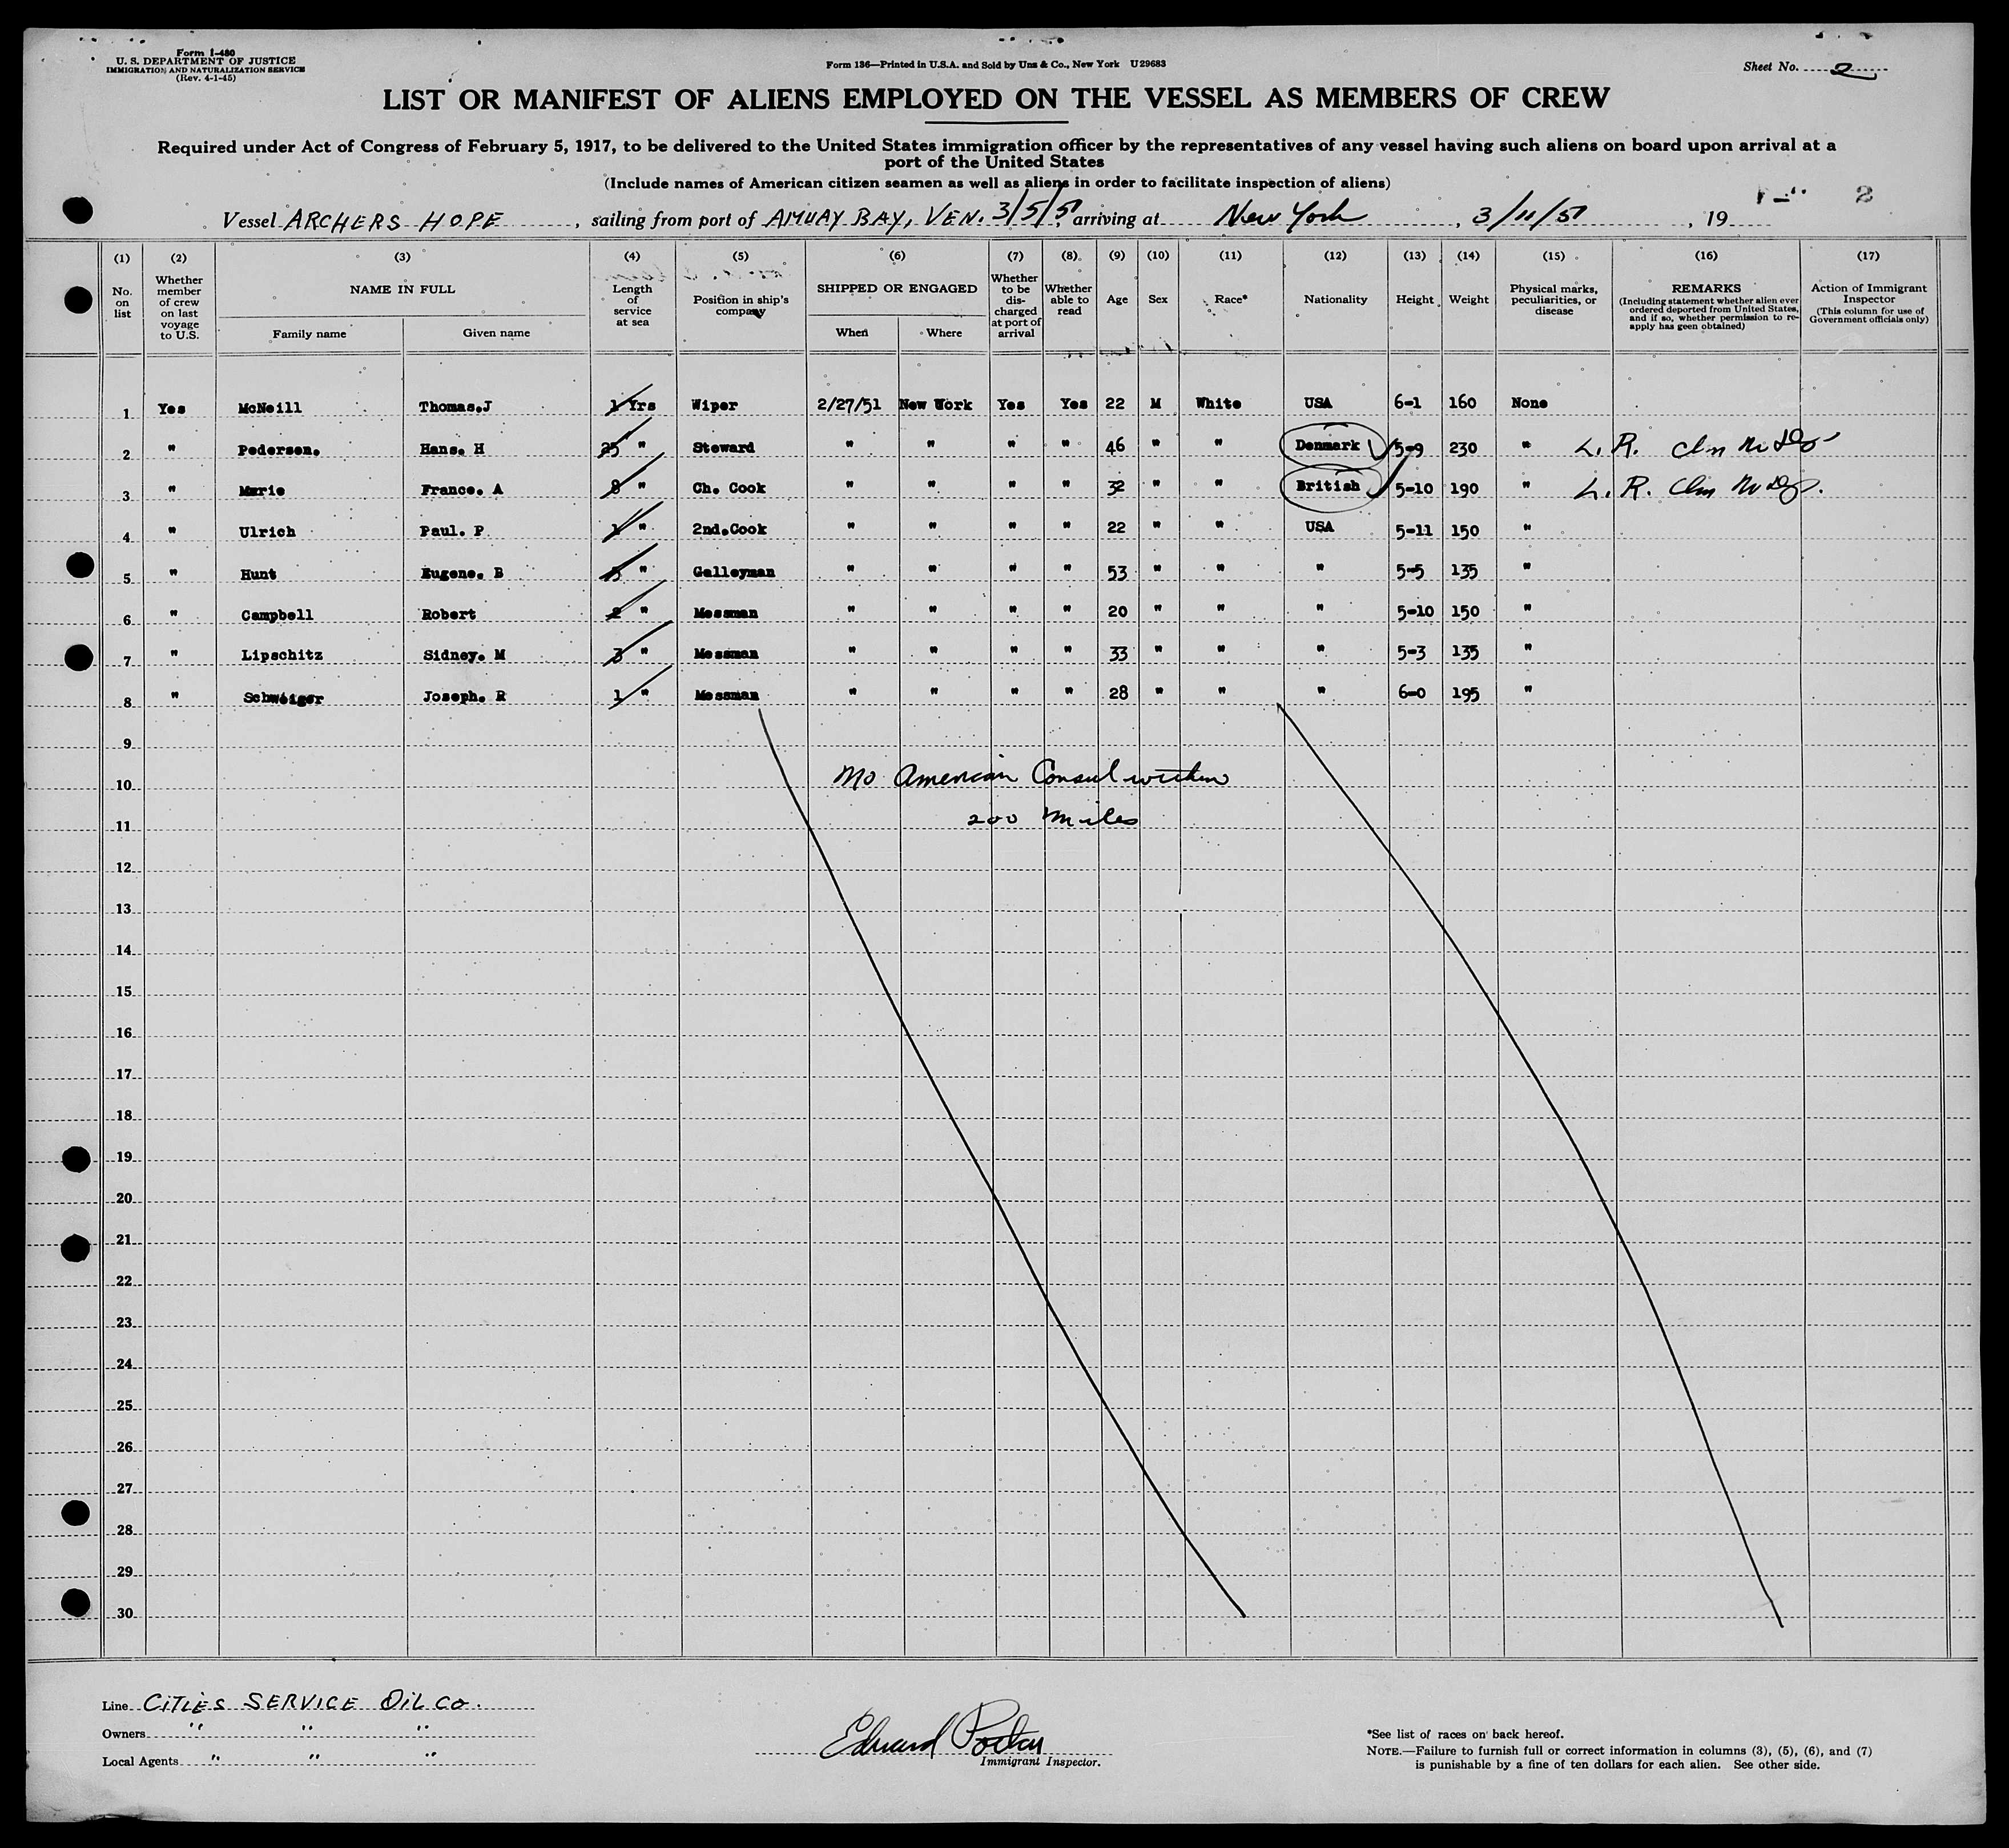 Form I-480
U. S. DEPARTMENT OF JUSTICE
IMMIGRATION AND NATURALIZATION SERVICE
(Rev. 4-1-45)
Form 136—Printed in U.S.A. and Sold by Unz & Co., New York U29683
Sheet No. 2
LIST OR MANIFEST OF ALIENS EMPLOYED ON THE VESSEL AS MEMBERS OF CREW
Required under Act of Congress of February 5, 1917, to be delivered to the United States immigration officer by the representatives of any vessel having such aliens on board upon arrival at a
port of the United States
(Include names of American citizen seamen as well as aliens in order to facilitate inspection of aliens)
2
Vessel ARCHERS HOPE, sailing from port of AMUAY BAY, VEN. 3/5/51, arriving at New York, 3/11/51, 19
(1) (2) (3) (4) (5) (6) (7) (8) (9) (10) (11) (12) (13) (14) (15) (16) (17)
No. on list
Whether member of crew on last voyage to U.S.
NAME IN FULL
Family name Given name
Length of service at sea
Position in ship's company
SHIPPED OR ENGAGED
When Where
Whether to be dis-charged at port of arrival
Whether able to read
Age
Sex
Race*
Nationality
Height
Weight
Physical marks, peculiarities, or disease
REMARKS
(Including statement whether alien ever ordered deported from United States, and if so, whether permission to re-apply has geen obtained)
Action of Immigrant Inspector
(This column for use of Government officials only)
1 Yes McNeill Thomas.J 1 Yrs Wiper 2/27/51 New York Yes Yes 22 M White USA 6-1 160 None
2 " Pedersen. Hans. H 25 " Steward " " " " 46 " " Denmark 5-9 230 " L. R.
3 " Marie France. A 8 " Ch. Cook " " " " 32 " " British 5-10 190 " L. R.
4 " Ulrich Paul. P 1 " 2nd.Cook " " " " 22 " " USA 5-11 150 "
5 " Hunt Eugene. B " Galleyman " " " " 53 " " " 5-5 135 "
6 " Campbell Robert 2 " Messman " " " " 20 " " " 5-10 150 "
7 " Lipschitz Sidney. M 3 " Messman " " " " 33 " " " 5-3 135 "
8 " Schweiger Joseph. R 1 " Messman " " " " 28 " " " 6-0 195 "
9
10 No American Consul within
11 200 Miles
12
13
14
15
16
17
18
19
20
21
22
23
24
25
26
27
28
29
30
Line CITIES SERVICE OIL CO.
Owners " " "
Local Agents " " "
Edward
Immigrant Inspector.
*See list of races on back hereof.
NOTE.—Failure to furnish full or correct information in columns (3), (5), (6), and (7)
is punishable by a fine of ten dollars for each alien. See other side.